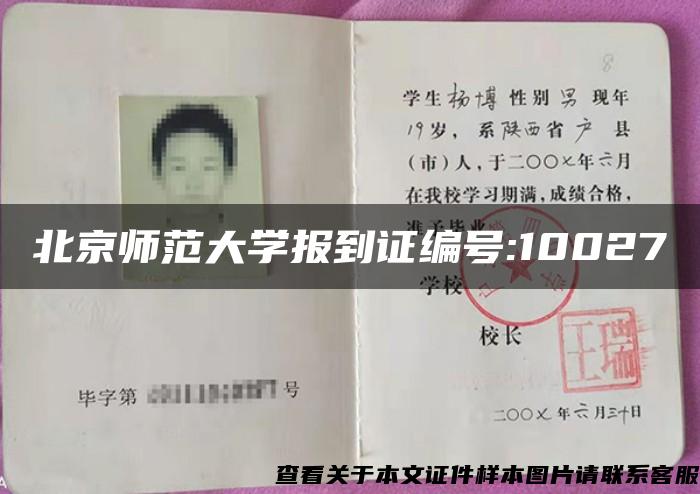 8
学生杨博性别男现年
19岁，系陕西省户县
(市)人，于二〇〇七年六月
在我校学习期满，成绩合格，
准予毕业
北京师范大学报到证编号:10027
学校
校长
毕字第
号
二〇〇七年六月三十日
查看关于本文证件样本图片请联系客服